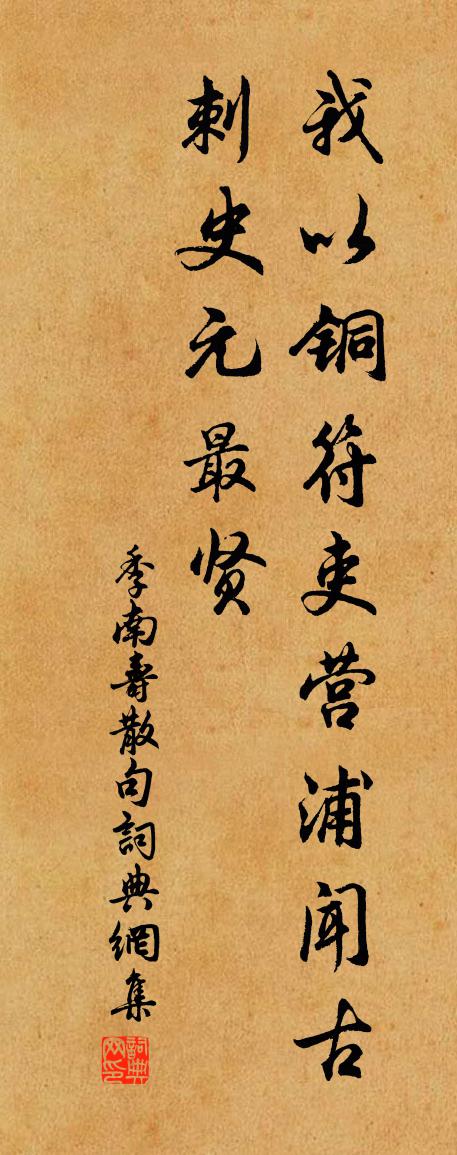 我以铜符吏营浦闻古
刺史元最贤
季南寿散句詞典網集
詞典
网印